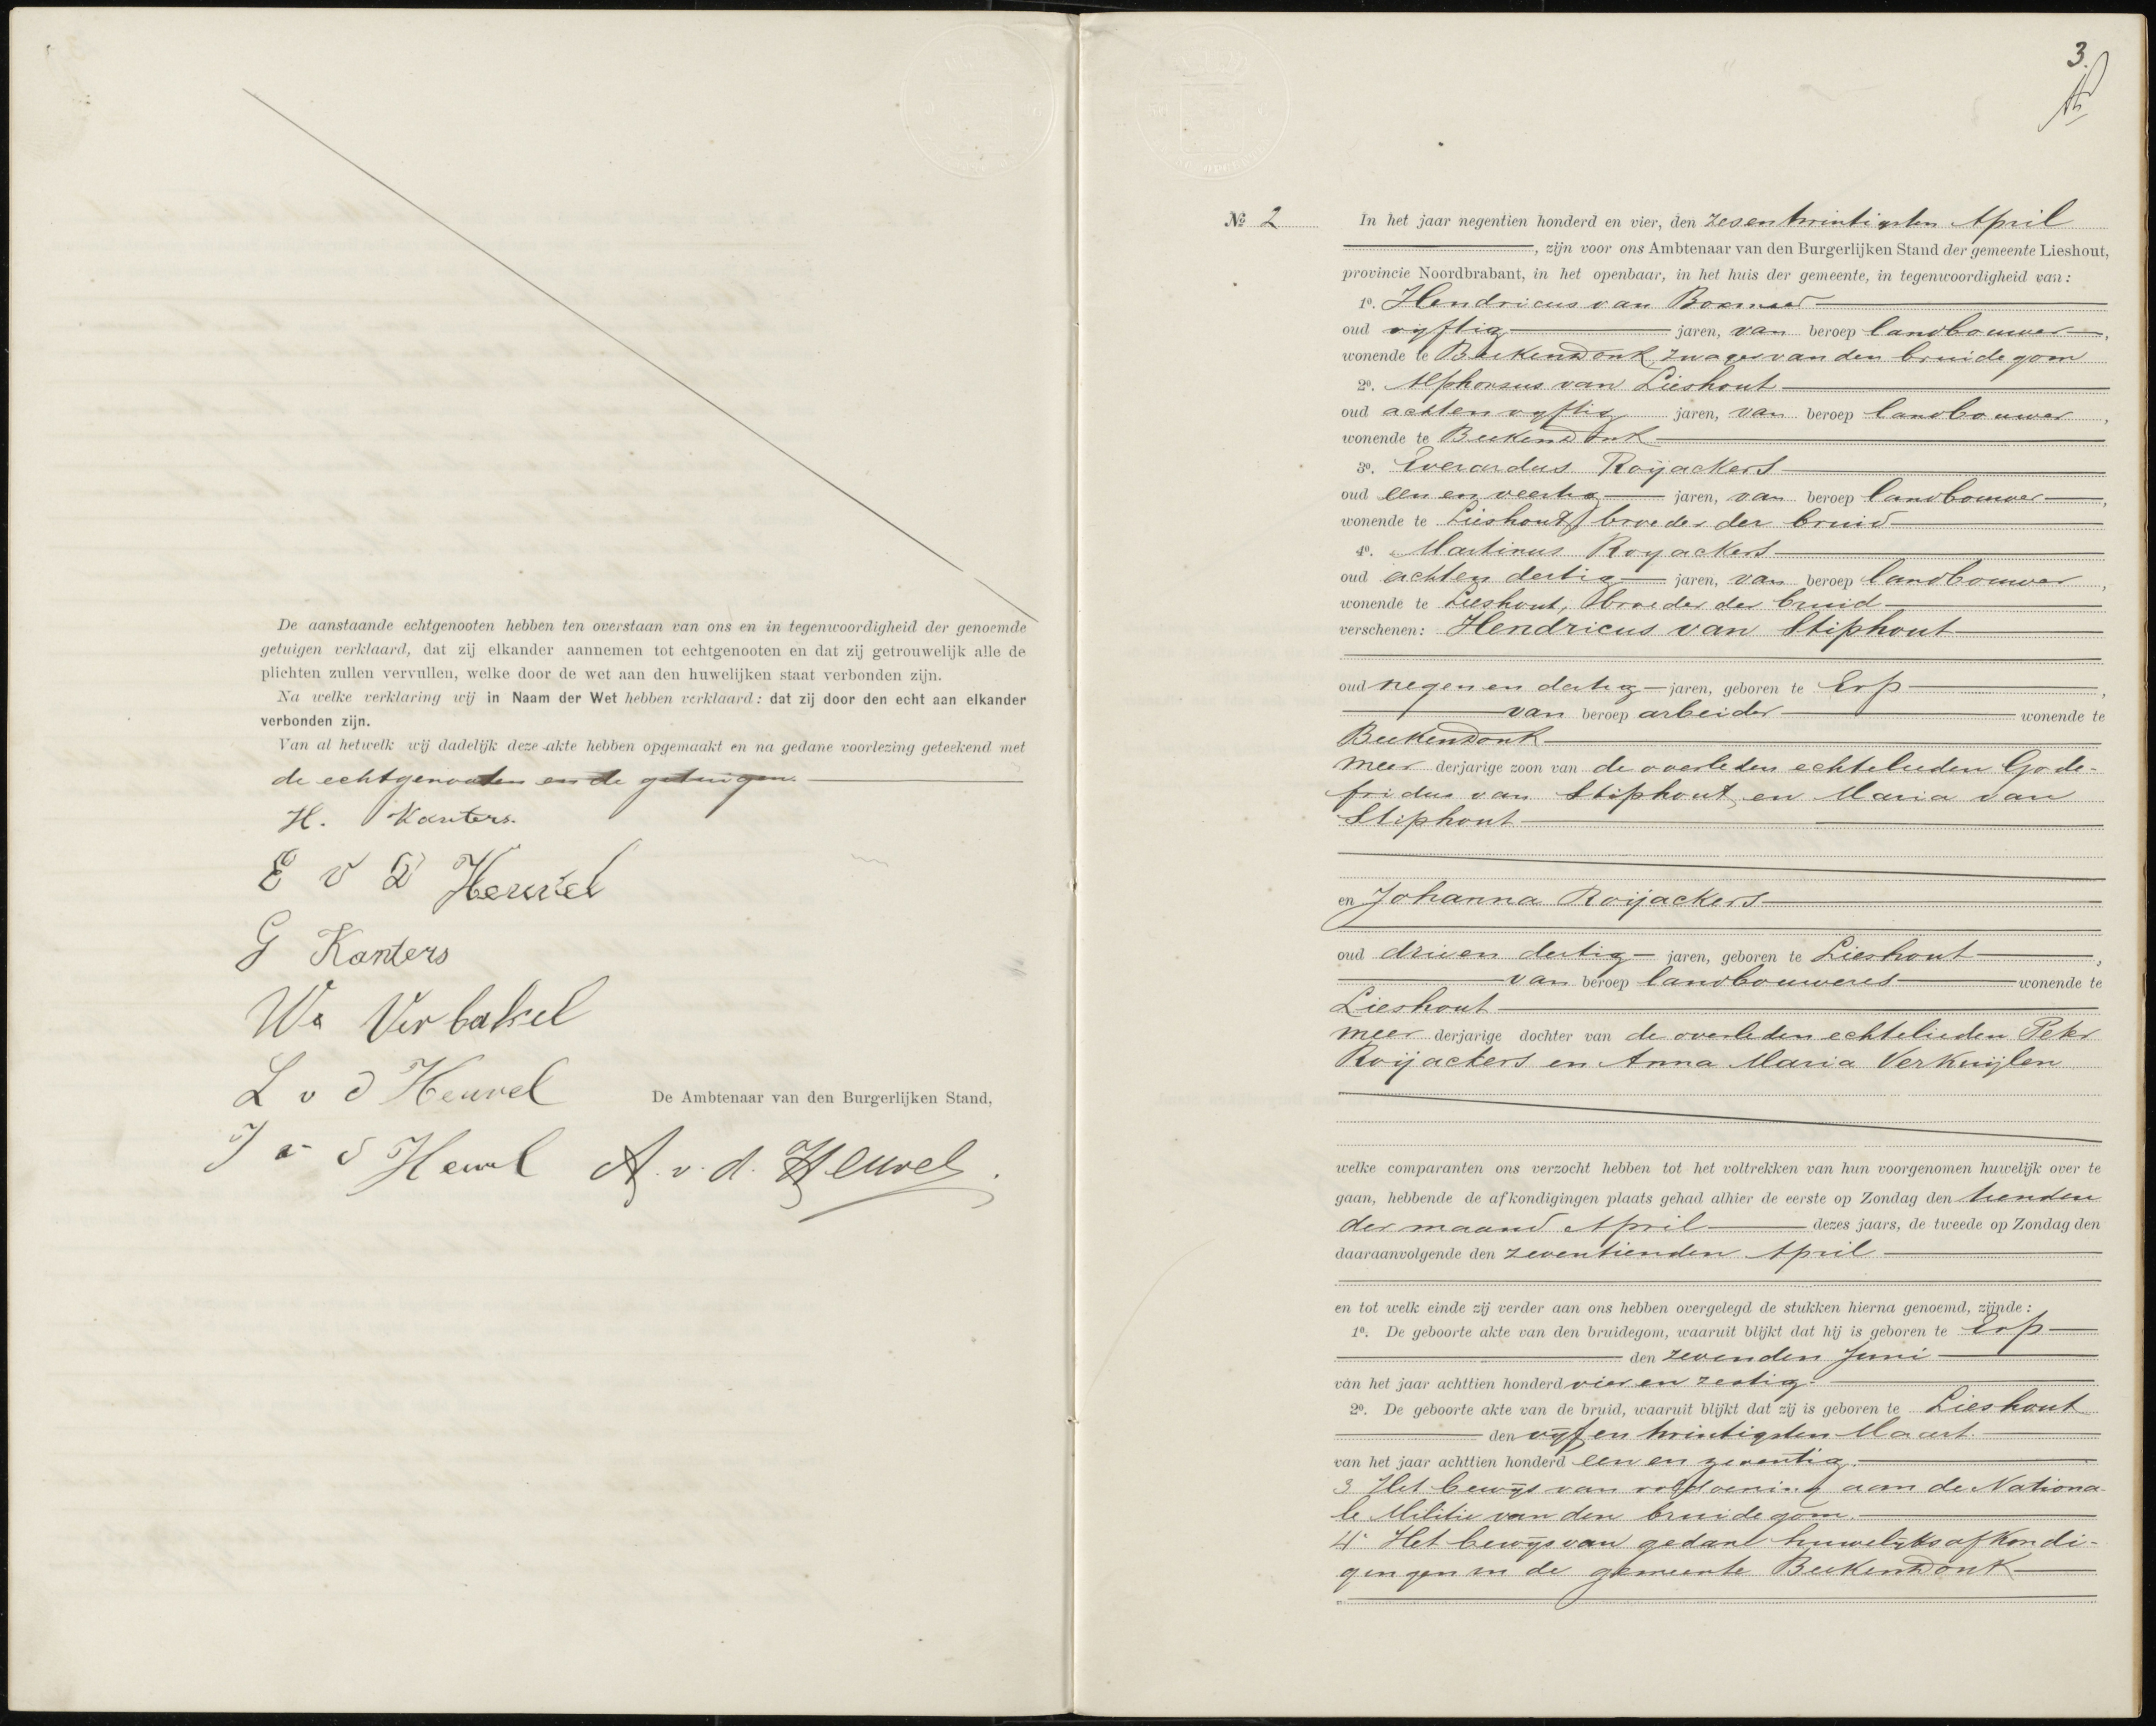 De aanstaande echtgenooten hebben ten overstaan van ons en in tegenwoordigheid der genoemde
getuigen verklaard, dat zij elkander aannemen tot echtgenooten en dat zij getrouwelijk alle de
plichten zullen vervullen, welke door de wet aan den huwelijken staat verbonden zijn.
Na welke verklaring wij in Naam der Wet hebben verklaard: dat zij door den echt aan elkander
verbonden zijn.
Van al hetwelk wij dadelijk deze akte hebben opgemaakt en na gedane voorlezing geteekend met
de echtgenooten en de getuigen.
H. Kanters.
E v D Heuvel
G Kanters
W. Verbakel
L v d Heuvel
De Ambtenaar van den Burgerlijken Stand,
J v d Heuvel
A. v. d. Heuvel.
3.
No 2
In het jaar negentien honderd en vier, den zesentwintigsten April
, zijn voor ons Ambtenaar van den Burgerlijken Stand der gemeente Lieshout,
provincie Noordbrabant, in het openbaar, in het huis der gemeente, in tegenwoordigheid van:
1o. Hendricus van Boxmeer
oud vijftig jaren, van beroep landbouwer,
wonende te Beekendonk, zwager van den bruidegom
2o. Alphonsus van Lieshout
oud achtenvijftig jaren, van beroep landbouwer,
wonende te Beekendonk
3o. Everardus Roijackers
oud een en veertig jaren, van beroep landbouwer,
wonende te Lieshout, broeder der bruid
4o. Martinus Royackers
oud achten dertig jaren, van beroep landbouwer,
wonende te Lieshout, broeder der bruid
verschenen: Hendricus van Stiphout
oud negen en dertig jaren, geboren te Erp,
van beroep arbeider wonende te
Beekendonk
meer derjarige zoon van de overleden echtelieden Gode-
fridus van Stiphout en Maria van
Stiphout
en Johanna Roijackers
oud drieen dertig jaren, geboren te Lieshout,
van beroep landbouweres wonende te
Lieshout
meer derjarige dochter van de overleden echtelieden Peter
Roijackers en Anna Maria Verkuijlen
welke comparanten ons verzocht hebben tot het voltrekken van hun voorgenomen huwelijk over te
gaan, hebbende de afkondigingen plaats gehad alhier de eerste op Zondag den tienden
der maand April dezes jaars, de tweede op Zondag den
daaraanvolgende den zeventienden April
en tot welk einde zij verder aan ons hebben overgelegd de stukken hierna genoemd, zijnde:
1o. De geboorte akte van den bruidegom, waaruit blijkt dat hij is geboren te Erp
den zevenden Juni
van het jaar achttien honderd vier en zestig.
2o. De geboorte akte van de bruid, waaruit blijkt dat zij is geboren te Lieshout
den vijf en twintigsten Maart.
van het jaar achttien honderd een en zeventig.
3 Het bewijs van voldoening aan de Nationa-
le Militie van den bruidegom.
4o Het bewijs van gedane huwelijksafkondi-
gingen in de gemeente Beekendonk